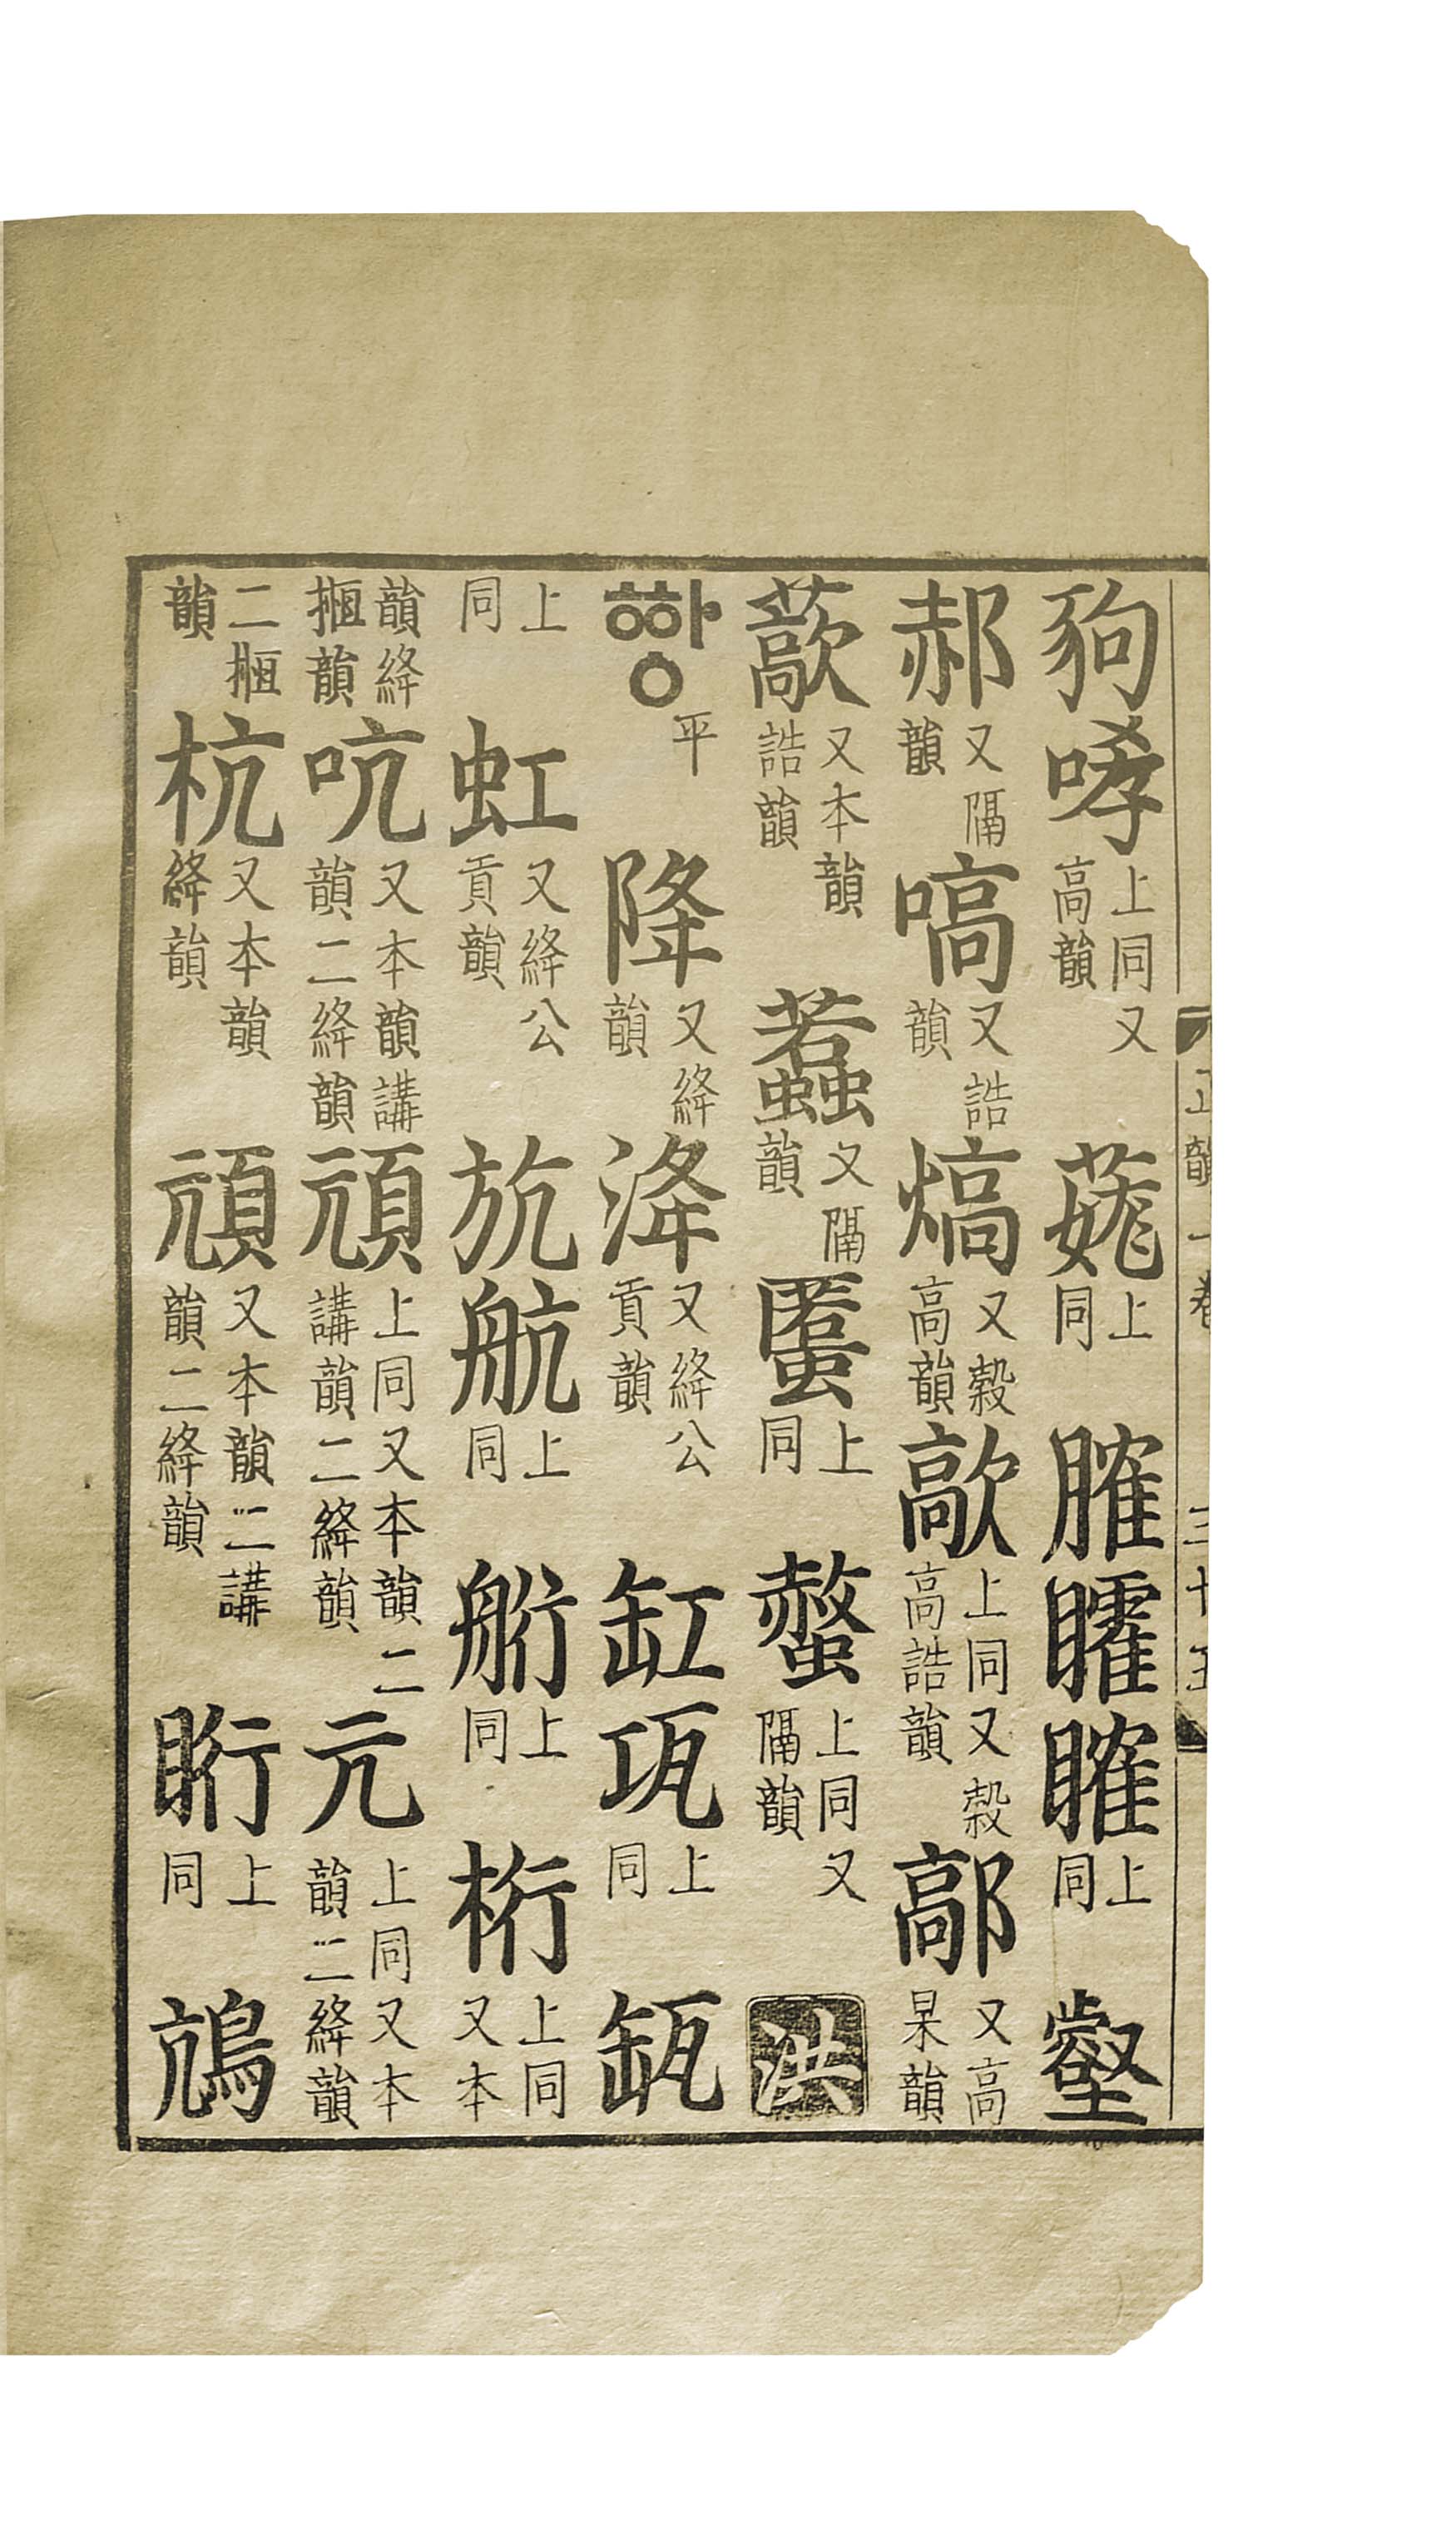 豞哮上同又高韻蘬上同臛矐䁨上同壑
郝又隔韻嗃又誥韻熇又穀高韻歊上同又穀高誥韻鄗又高杲韻
藃又本韻誥韻蠚又隔韻上同螫上同又隔韻洪
ᅘᅡᇰ平降又絳韻洚又絳公貢韻缸㼦上同瓨
上同虹又絳公貢韻斻航上同䑪上同桁上同又本
韻絳搄韻吭又本韻講韻二絳韻頏上同又本韻二講韻二絳韻亢上同又本韻二絳韻
二搄韻杭又本韻絳韻頏又本韻二講韻二絳韻䀪上同鴋
正韻一卷 三十五